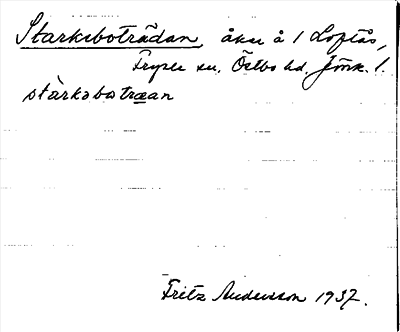 Starkebotrådan, åker å 1 Loftås,
Fryele sn. Östbo hd. Jönk. l.
stàrkəbotræan
Fritz Andersson 1937.